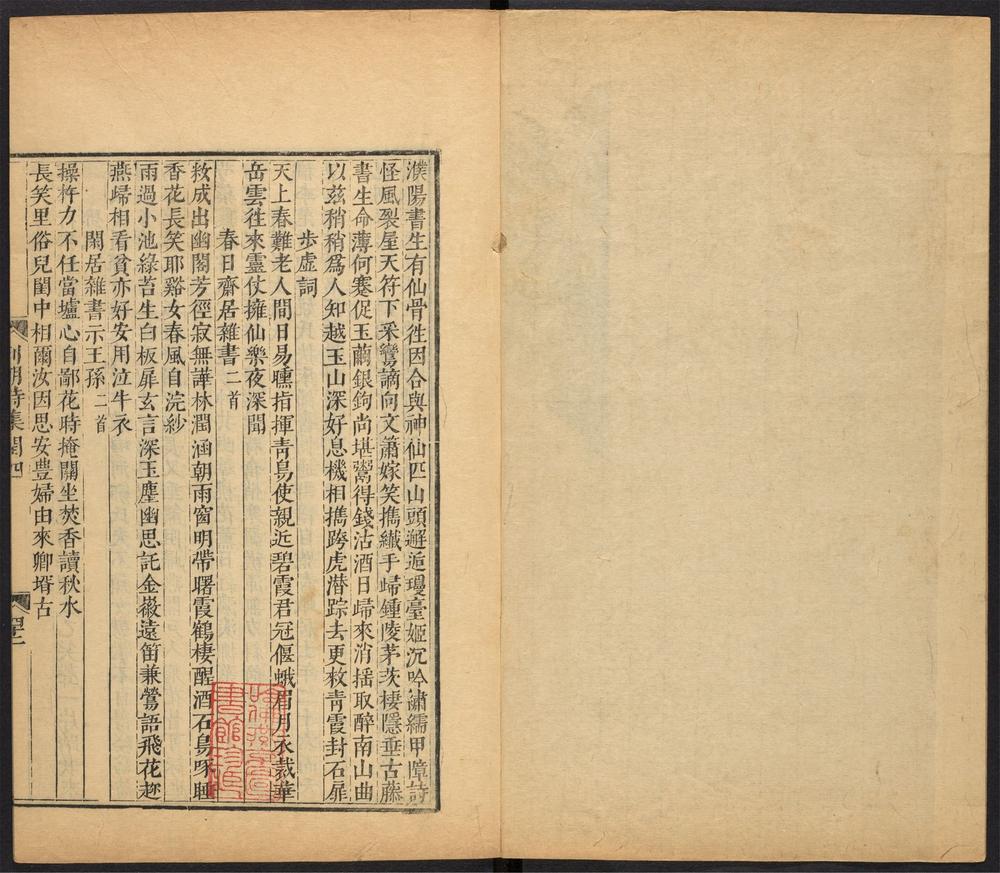 濮陽書生有仙骨徃因合與神仙匹山頭邂逅瓊臺姬沉吟繡繻甲隌詩
怪風裂屋天符下采鸞謫向文蕭嫁笑擕纖手歸鍾陵茅茨棲隱垂古藤
書生命薄何蹇促玉繭銀鉤尚堪鬻得錢沽酒日歸來消揺取醉南山曲
以茲稍稍爲人知越玉山深好息機相擕跨虎潜踪去更敕青霞封石扉
歩虛詞
天上春難老人間日易曛指揮青鳥使親近碧霞君冠偃蛾眉月衣裁華
岳雲徃來靈仗擁仙樂夜深聞
春日齋居雜書二首
籹成出幽閣芳徑寂無譁林潤涵朝雨窗明帶曙霞鶴棲醒酒石鳥啄睡
香花長笑耶谿女春風自浣紗
雨過小池綠苔生白板扉玄言深玉麈幽思託金徽遠笛兼鶯語飛花趂
燕歸相看貧亦好安用泣牛衣
閑居雜書示王孫二首
操杵力不任當壚心自鄙花時掩關坐焚香讀秋水
長笑里俗兒閨中相爾汝因思安豊婦由來卿壻古
列朝詩集閏四